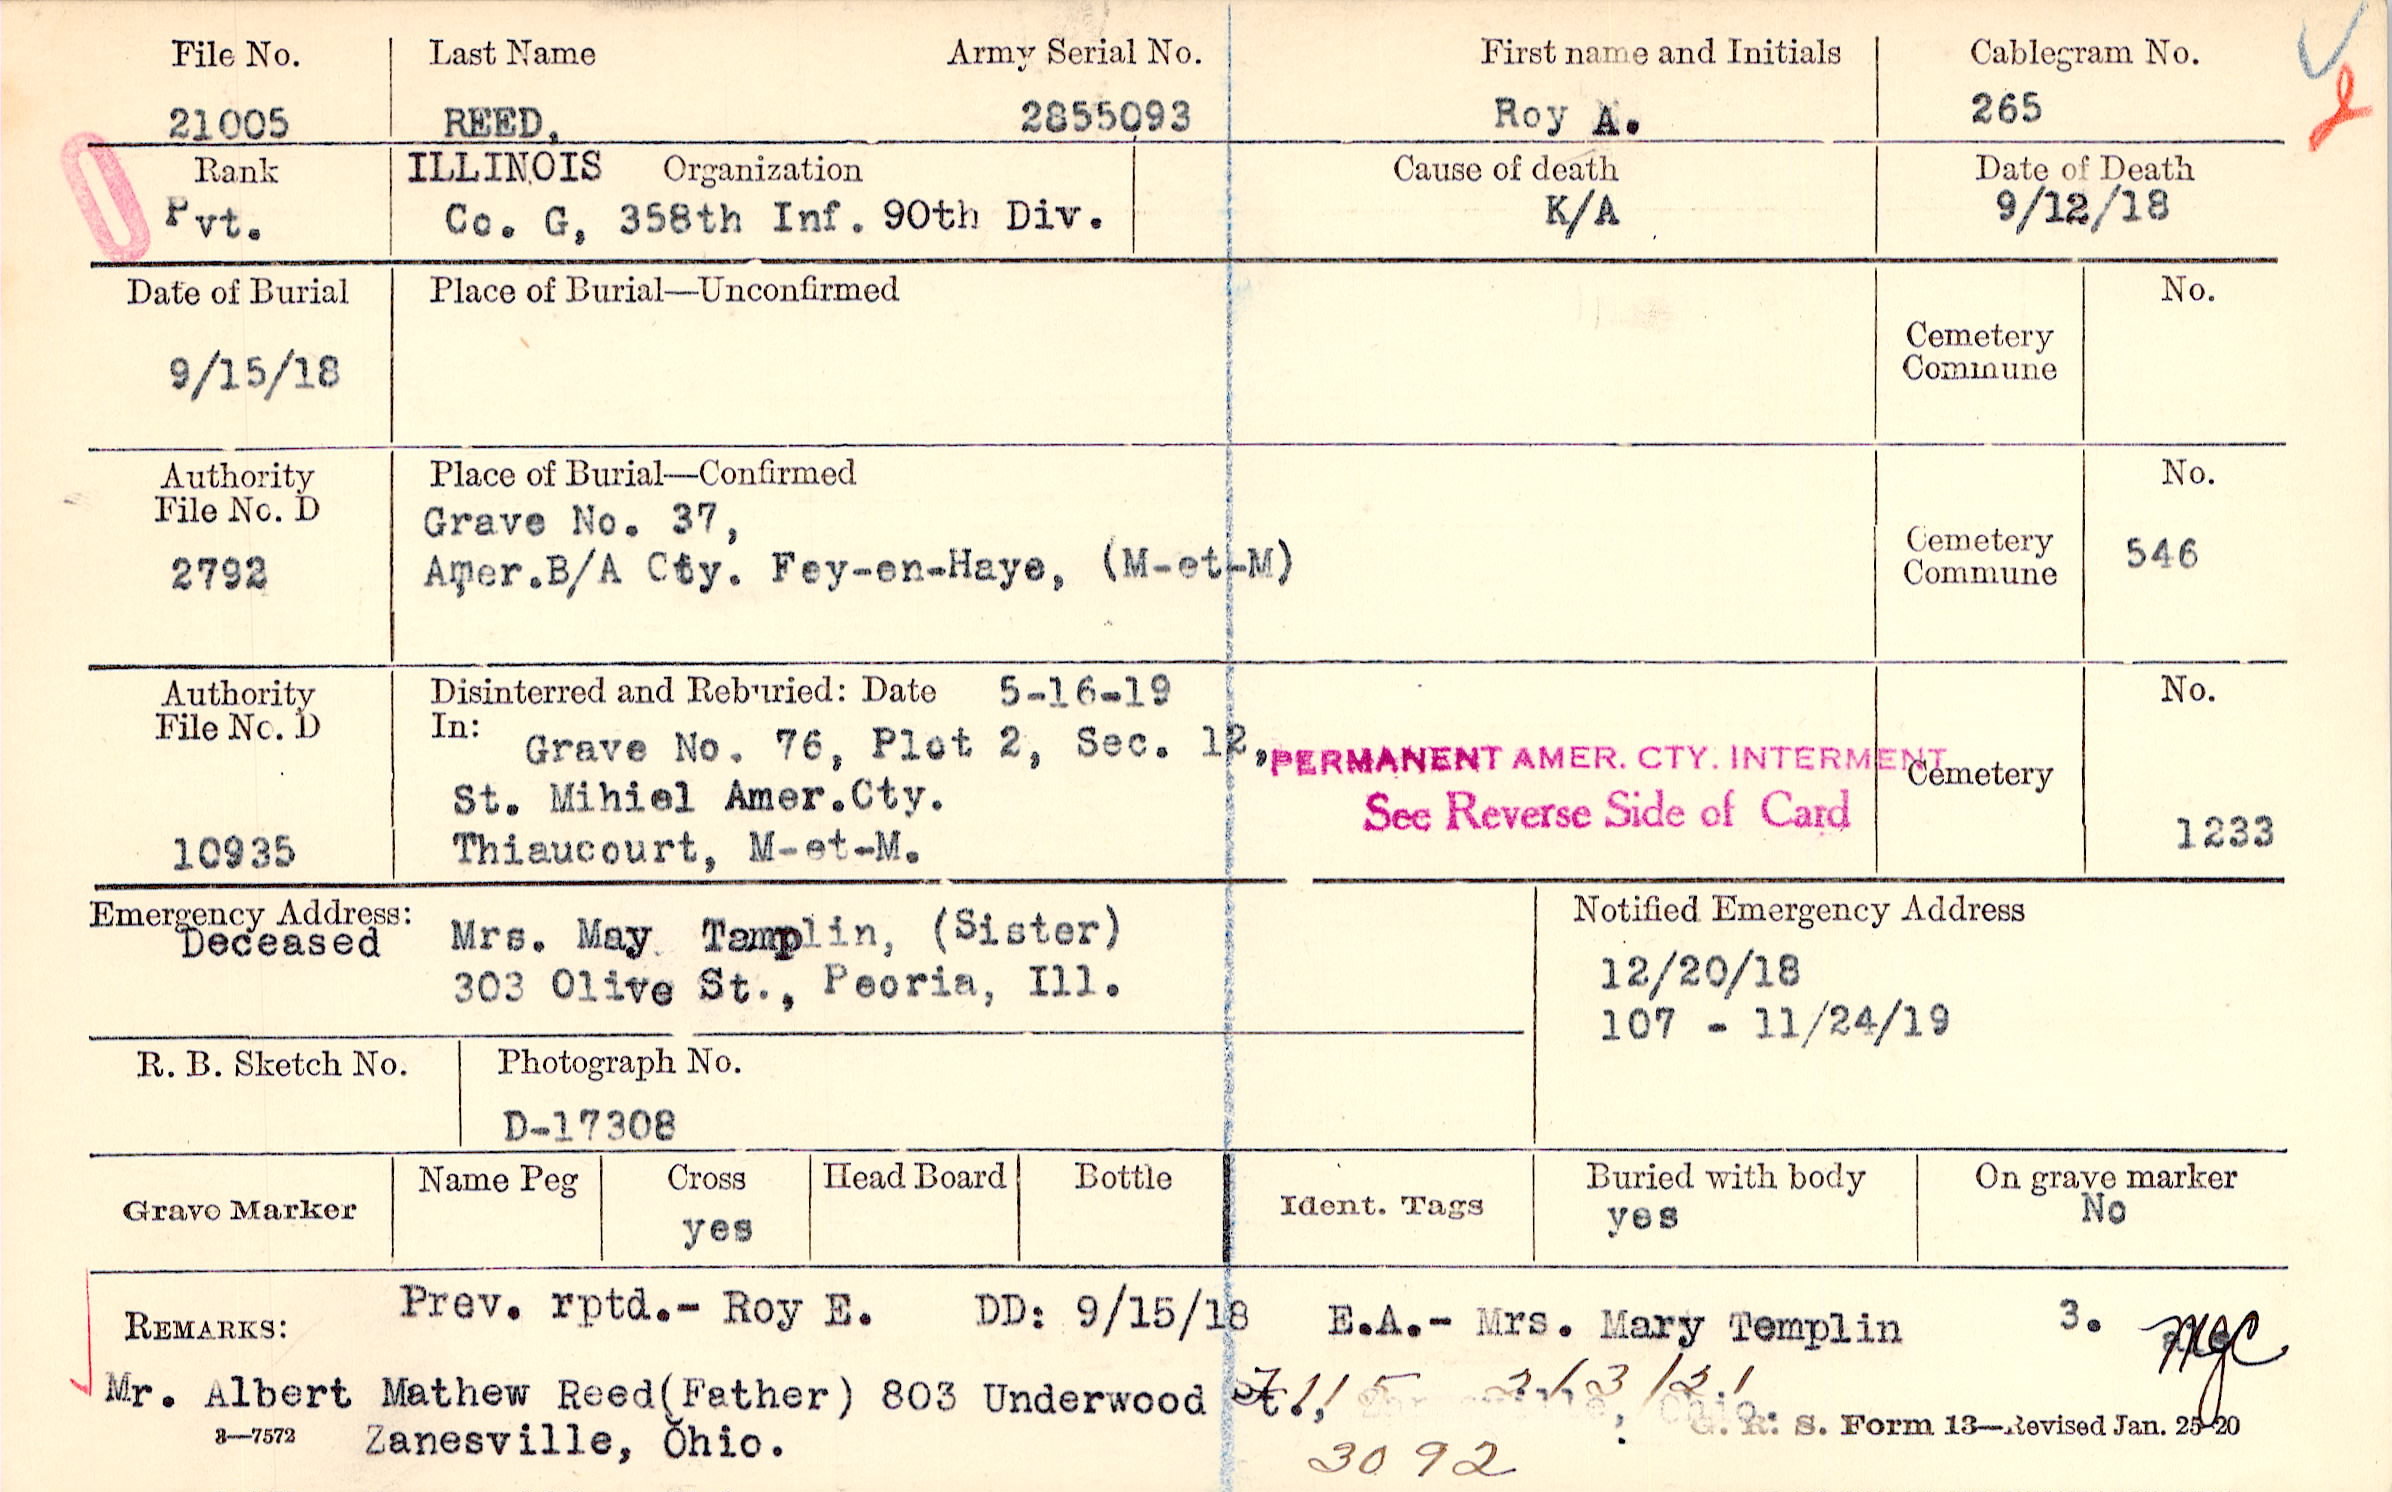 File No. Last Name Army Serial No. First name and Initials Cablegram No.
21005 REED, 2855093 Roy A. 265
Rank ILLINOIS Organization Cause of death Date of Death
Pvt. Co. G, 358th Inf. 90th Div. K/A 9/12/18
Date of Burial Place of Burial—Unconfirmed No.
Cemetery
Commune
9/15/18
Authority Place of Burial—Confirmed No.
File No. D
Grave No. 37,
Cemetery
Commune
2792 Amer.B/A Cty. Fey-en-Haye, (M-et-M) 546
Authority Disinterred and Reburied: Date 5-16-19 No.
File No. D In:
Grave No. 76, Plot 2, Sec. 12,
PERMANENT AMER. CTY. INTERMENT
Cemetery
St. Mihiel Amer.Cty.
See Reverse Side of Card
10935 Thiaucourt, M-et-M. 1233
Emergency Address: Notified Emergency Address
Deceased Mrs. May Tamplin, (Sister)
303 Olive St., Peoria, Ill.
12/20/18
107 - 11/24/19
R. B. Sketch No. Photograph No.
D-17308
Grave Marker Name Peg Cross Head Board Bottle Ident. Tags Buried with body On grave marker
yes yes No
REMARKS: Prev. rptd.- Roy E. DD: 9/15/18 E.A.- Mrs. Mary Templin 3. MGC
Mr. Albert Mathew Reed(Father) 803 Underwood St., 2/3/21
3—7572 Zanesville, Ohio. G. R. S. Form 13—Revised Jan. 25-20
3092